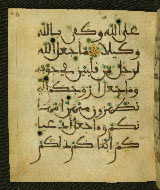 على الله وكفى بالله
وكيلا ما جعل الله
لرجل من قلبين في جوفه
وما جعل ازوجكم الى
تظهرون منهن امها
تكم وما جعل ادعيا
كم ابناكم ذلكم